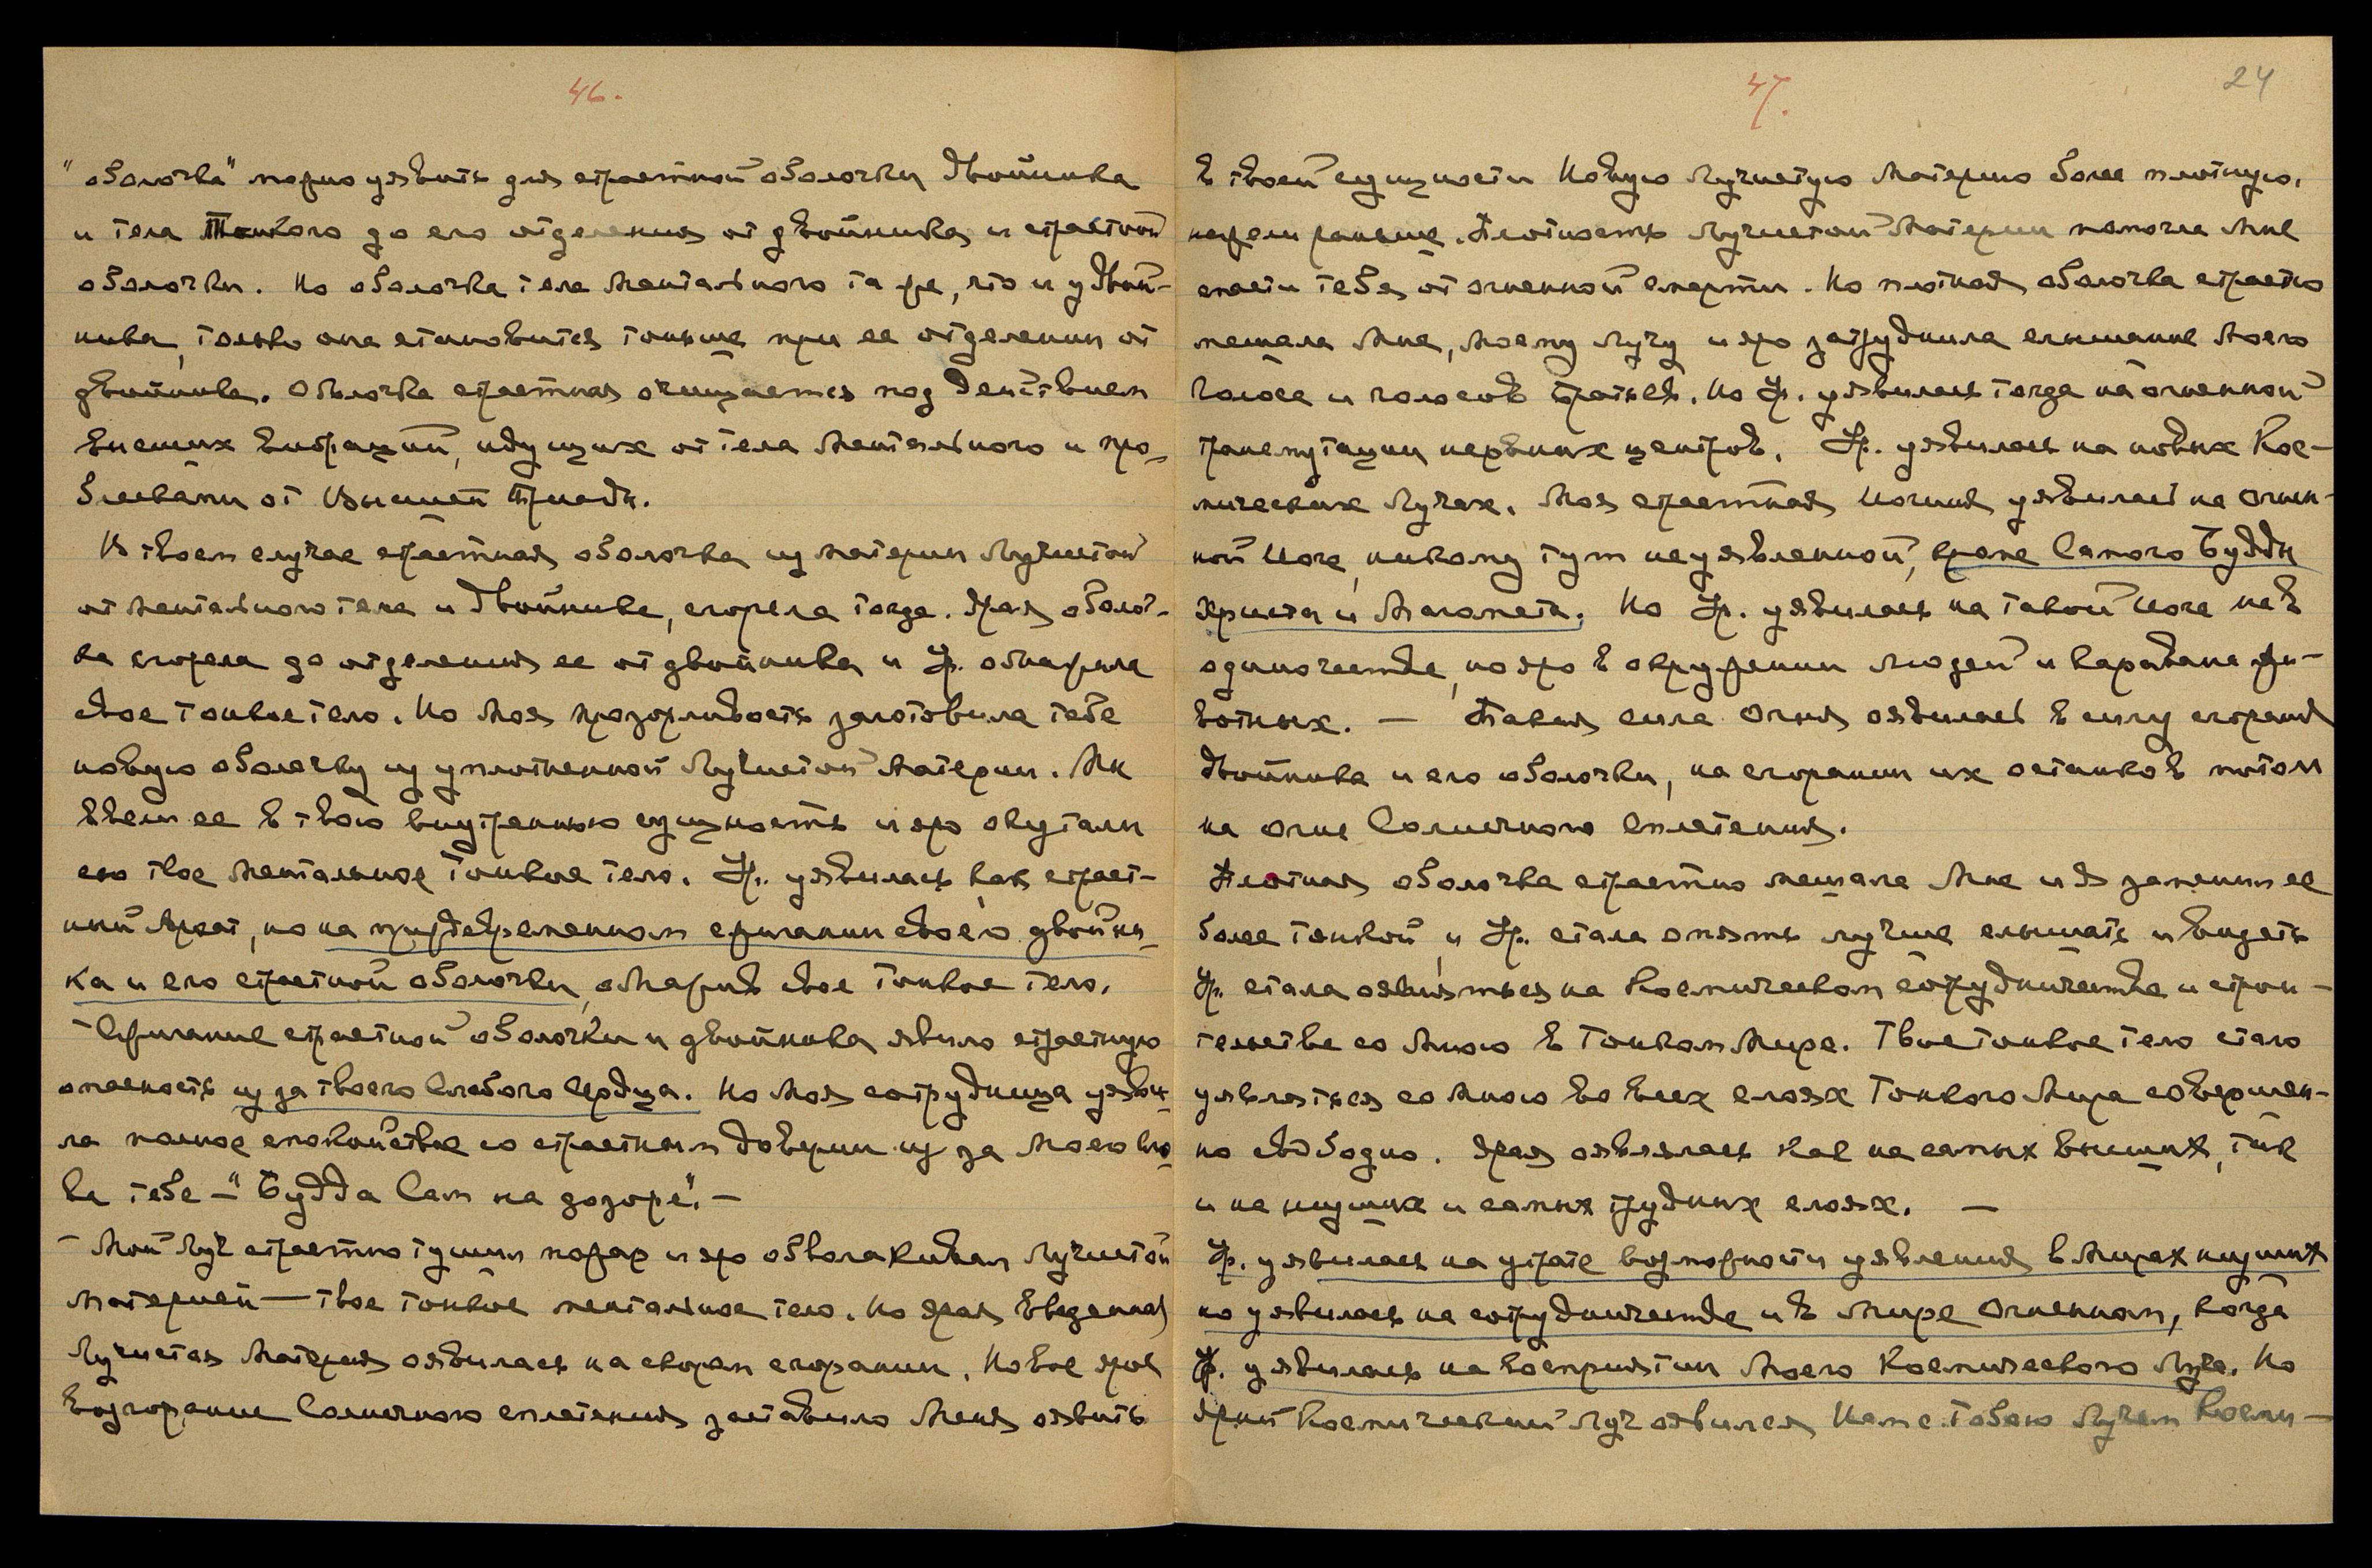 46.
"оболочка" можно уявить для страстной оболочки двойника
и тела Тонкого до его отделения от двойника и страстной
оболочки. Но оболочка тела Ментального та же, что и у двой-
ника, только она становится тоньше при ее отделении от
двойника. Оболочка страстная очищается под действием
высших вибраций, идущих от тела Ментального и про-
блесками от Высшей Триады.
В твоем случае страстная оболочка из материи Лучистой
от ментального тела и двойника, сгорела тогда. Ярая оболоч-
ка сгорела до отделения ее от двойника и Ур. обнажила
свое тонкое тело. Но Моя прозорливость заготовила тебе
новую оболочку из уплотненной Лучистой Материи. Мы
ввели ее в твою внутреннюю сущность и яро окутали
ею твое ментальное тонкое тело. Ур. уявилась как страст-
ный Архат, но на преждевременном сжигании своего двойни-
ка и его страстной оболочки, обнажив свое тонкое тело.
– Сжигание страстной оболочки и двойника явило страстную
опасность из за твоего слабого Сердца. Но Моя сотрудница уяви-
ла полное спокойствие со страстным доверием из за Моего
тебе – "Будда Сам на дозоре". –
– Мой Луч страстно тушил пожар и яро обволакивал Лучистой
Материей – твое тонкое ментальное тело. Но ярая введенная
Лучистая Материя оявилась на скором сгорании. Новое ярое
возгорание Солнечного сплетения заставило Меня оявить
47.
24
в твоей сущности Новую Лучистую Материю более плотную,
нежели раньше. Плотность Лучистой Материи помогла Мне
спасти тебя от огненной смерти. Но плотная оболочка страстно
мешала Мне, Моему Лучу и яро затруднила слышание Моего
Голоса и голосов Братьев. Но Ур. уявилась тогда на огненной
трансмутации нервных центров. Ур. уявилась на новых Кос-
мических Лучах. Моя страстная Йогиня уявилась на Огнен-
ной Йоге, никому тут не уявленной, кроме Самого Будды
Христа и Магомета. Но Ур. уявилась на такой Йоге не в
одиночестве, но яро в окружении людей и каравана жи-
вотных. – Такая сила Огня оявилась в силу сгорания
двойника и его оболочки, на сгорании их останков потом
на огне Солнечного Сплетения.
Плотная оболочка страстно мешала Мне и Я заменил ее
более тонкой и Ур. стала опять лучше слышать и видеть
Ур. стала оявляться на Космическом сотрудничестве и строи-
тельстве со Мною в Тонком Мире. Твое тонкое тело стало
уявляться со Мною во всех слоях Тонкого Мира совершен-
но свободно. Ярая оявлялась как на самых высших, так
и на низших и самых трудных слоях. –
Ур. уявилась на утрате возможности уявления в Мирах низших
но уявилась на сотрудничестве и в Мире Огненном, когда
Ур. уявилась на восприятии Моего Космического Луча. Но
Ярый Космический Луч оявился Нам с тобою Лучом Косми-